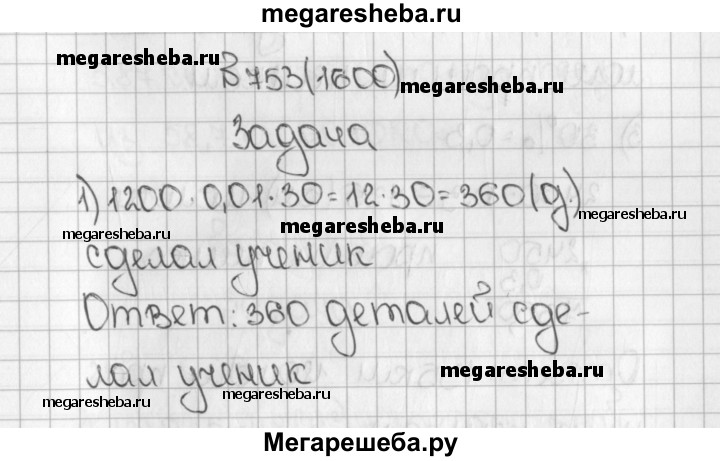 megaresheba.ru
megaresheba.ru
В 753(1600)
megaresheba.ru
Задача
1) 1200 · 0,01 · 30 = 12 · 30 = 360 (д.)
megaresheba.ru
megaresheba.ru
megaresheba.ru
сделал ученик
Ответ: 360 деталей сде-
лал ученик
megaresheba.ru
megaresheba.ru
megaresheba.ru
Мегарешеба.ру